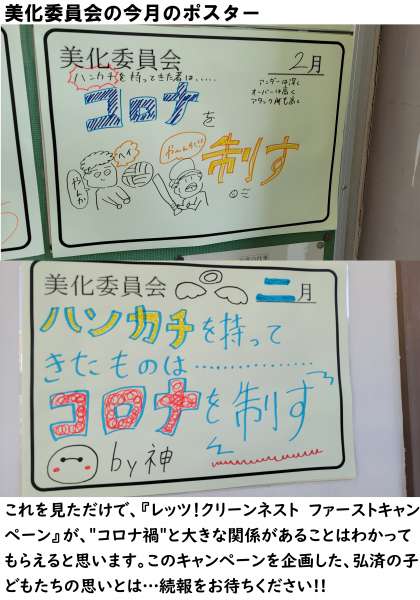 美化委員会の今月のポスター
美化委員会
2月
ハンカチを持ってきた者は.....
アンダーは深く
オーバーは高く
アタック何も高く
コロナ
を
制す
ヘイ
やーんだい!!
美化委員会
二月
ハンカチを持って
きたものは……………
コロナを制す
by神
これを見ただけで、『レッツ!クリーンネスト ファーストキャン
ペーン』が、"コロナ禍"と大きな関係があることはわかって
もらえると思います。このキャンペーンを企画した、弘済の子
どもたちの思いとは…続報をお待ちください!!